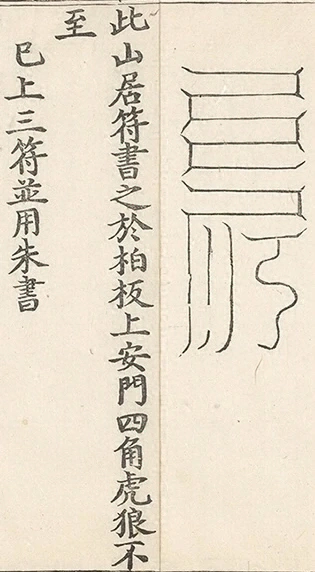 此山居符書之於柏板上安門四角虎狼不
至
已上三符並用朱書